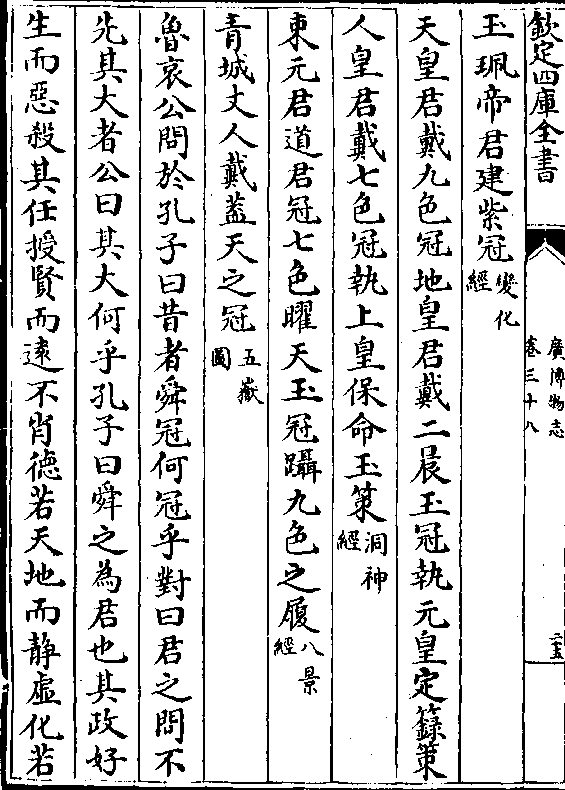 欽定四庫全書
廣博物志
卷三十八
二五
玉珮帝君建紫冠變化經
天皇君戴九色冠地皇君戴二晨玉冠執元皇定籙策
人皇君戴七色冠執上皇保命玉策洞神經
東元君道君冠七色曜天玉冠躡九色之履八景經
青城丈人戴蓋天之冠五嶽圖
魯哀公問於孔子曰昔者舜冠何冠乎對曰君之問不
先其大者公曰其大何乎孔子曰舜之為君也其政好
生而惡殺其任授賢而遠不肖德若天地而静虛化若